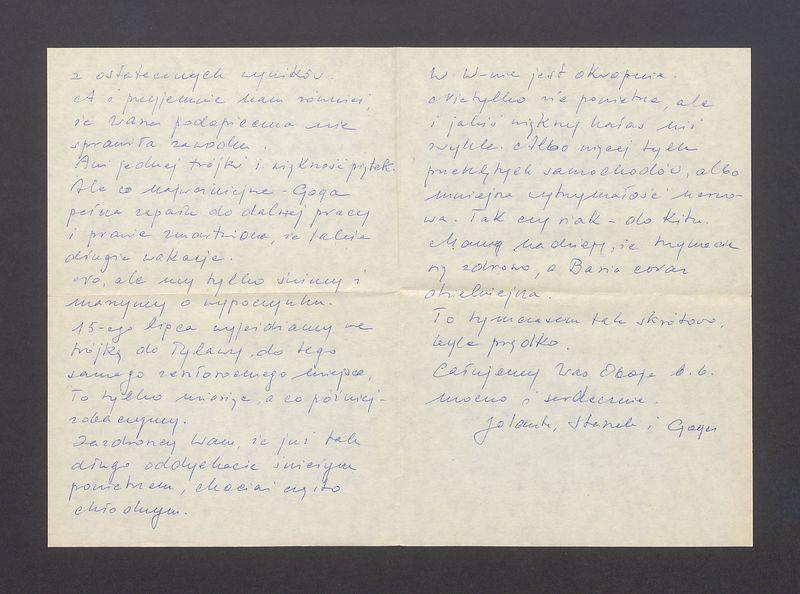 z ostatecznych wyników.
A i przyjemnie nam również,
że Wasza podopieczna nie
sprawiła zawodu.
Ani jednej trójki i większość piątek.
Ale co najważniejsze - Goga
pełna zapału do dalszej pracy
i prawie zmartwiona, że takie
długie wakacje.
No, ale my tylko śnimy i
marzymy o wypoczynku.
15-ego lipca wyjeżdżamy we
trójkę do Tylawy, do tego
samego zeszłorocznego miejsca.
To tylko miesiąc, a co później -
zobaczymy.
Zazdroszczę Wam, że już tak
długo oddychacie świeżym
powietrzem, chociaż często
chłodnym.
W W-wie jest okropnie.
Nie tylko złe powietrze, ale
i jakiś większy hałas niż
zwykle. Albo więcej tych
przeklętych samochodów, albo
mniejsza wytrzymałość nerwo-
wa. Tak czy siak - do kitu.
Mamy nadzieję, że trzymacie
się zdrowo, a Basia coraz
dzielniejsza.
To tymczasem tak skrótowo,
byle prędko.
Całujemy Was Oboje b. b.
mocno i serdecznie.
Jolanta, Staszek i Goga